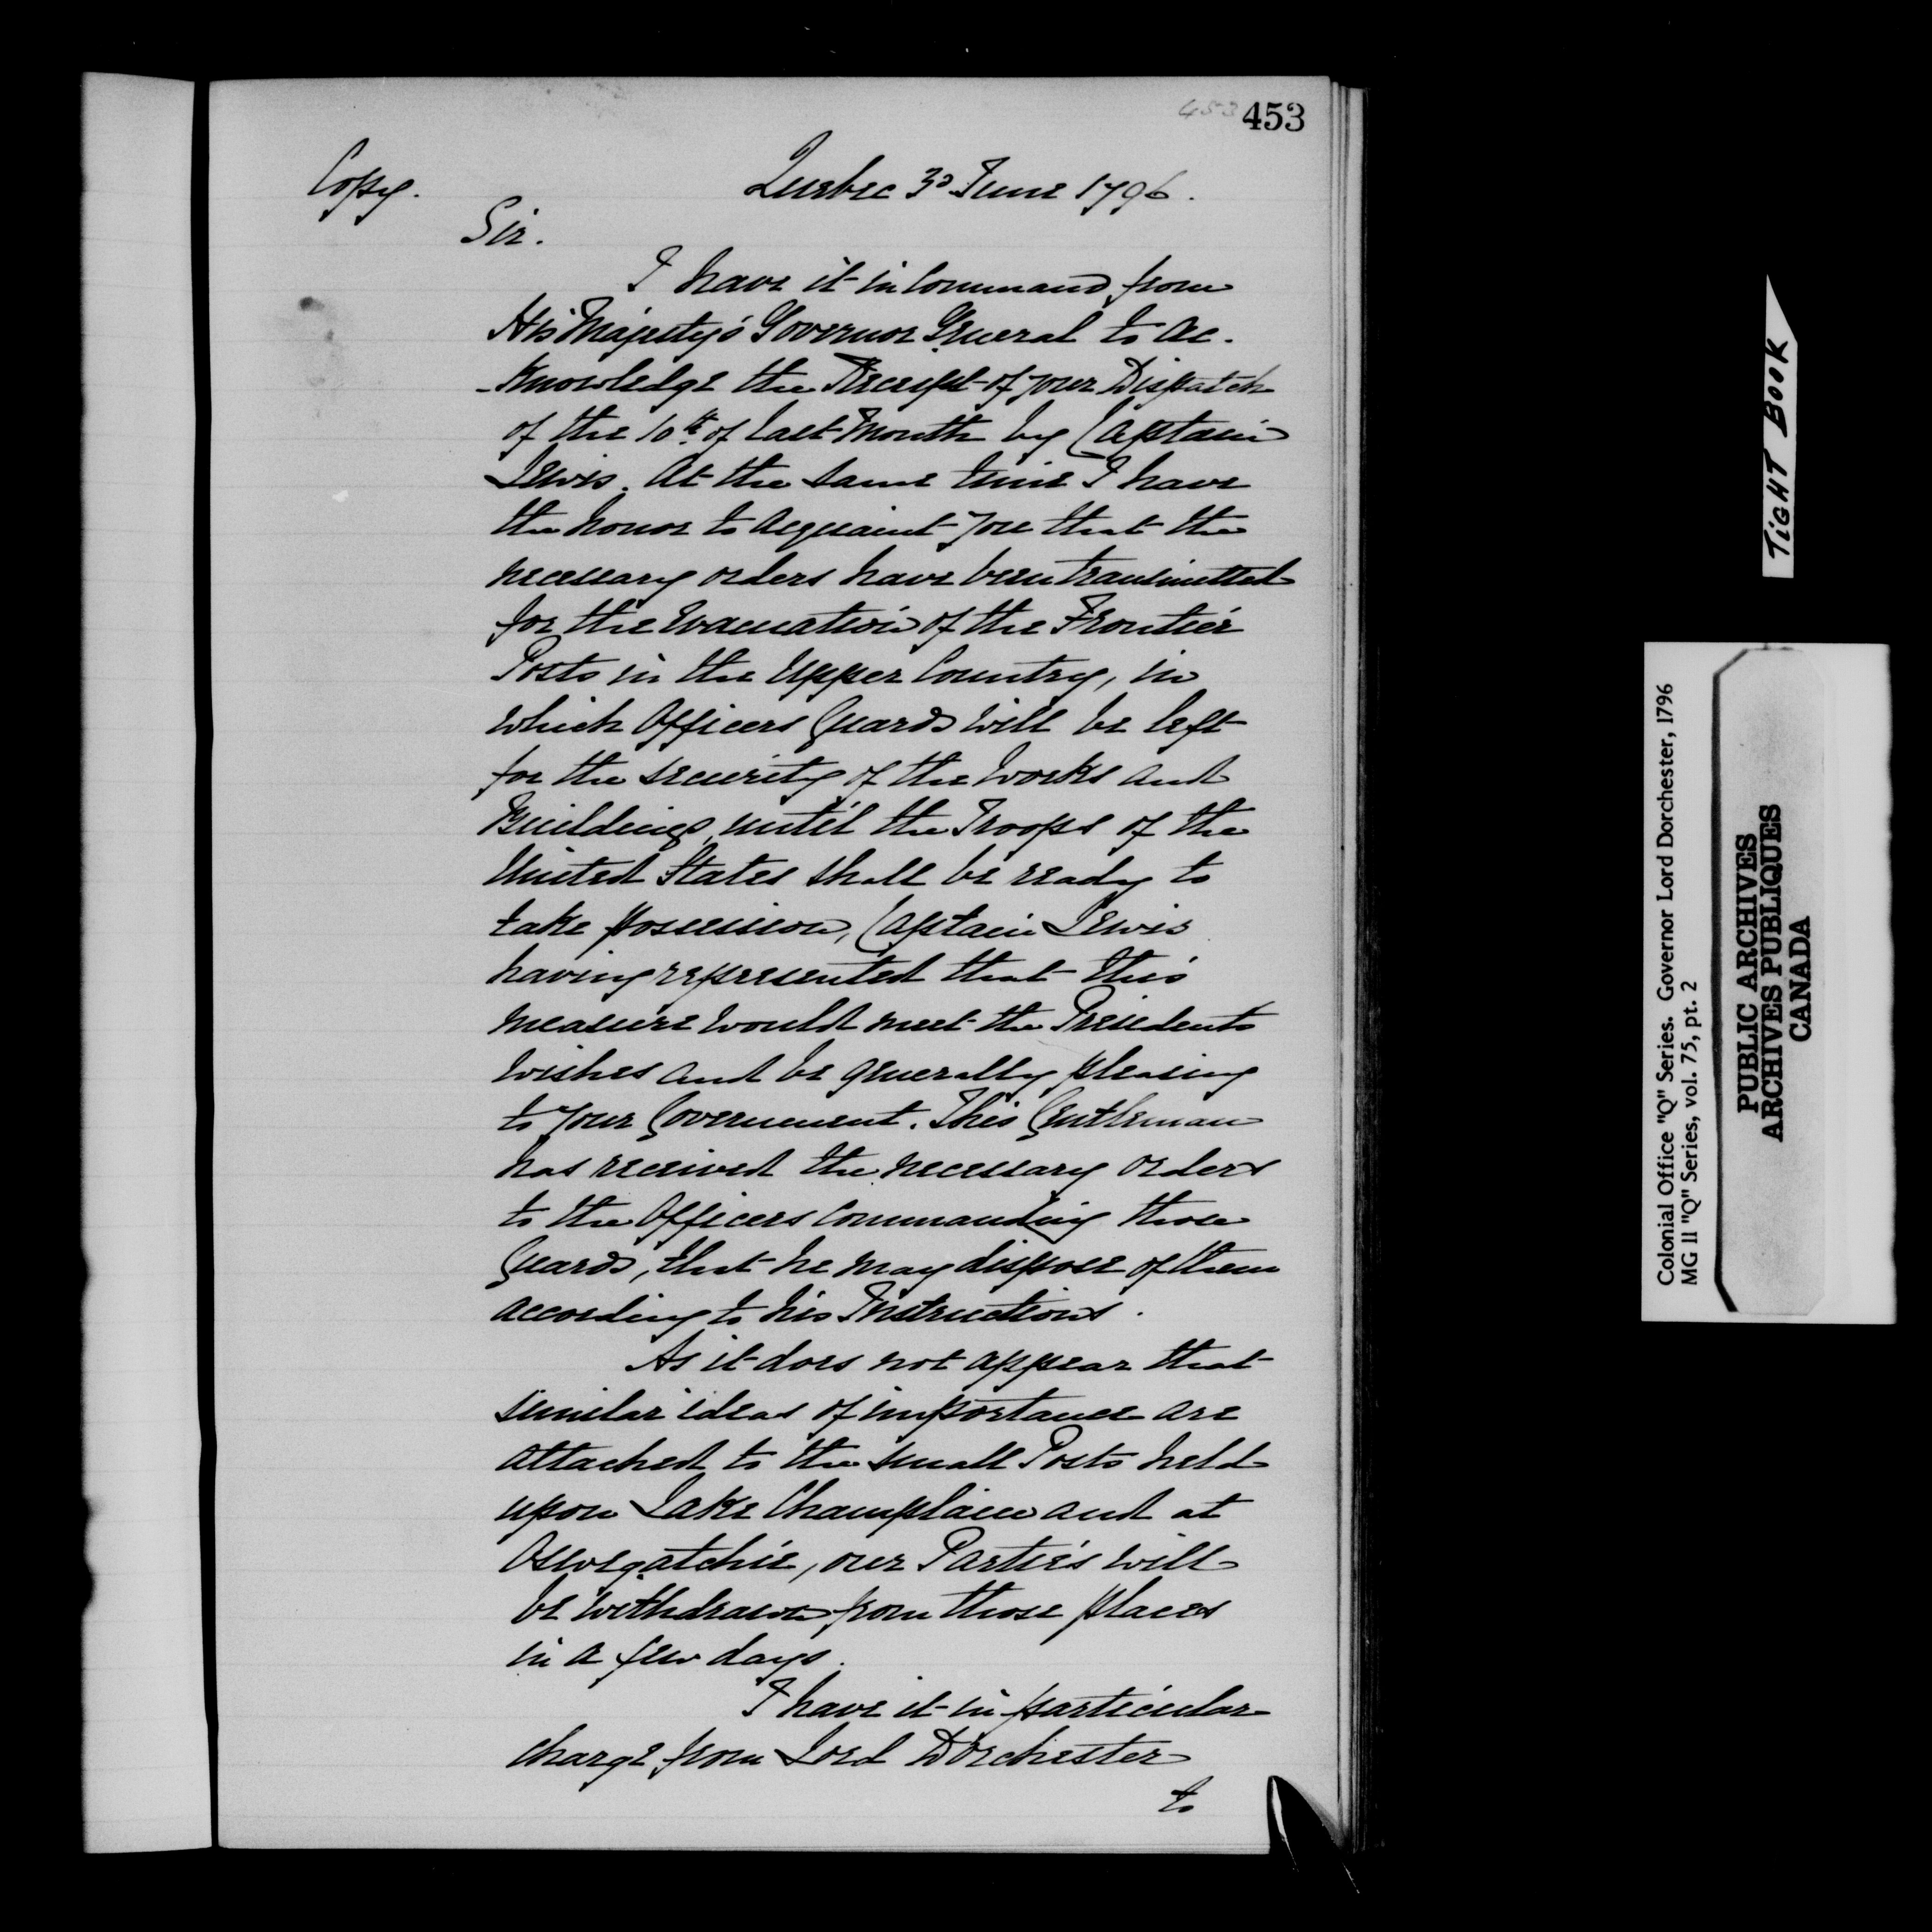 453 453
Copy.
Quebec 3d June 1796.
Sir.
I have it in Command from
His Majesty's Governor General to ac-
-knowledge the Receipt of your Dispatch
of the 10th of last Month by Captain
Lewis. At the same time I have
the honor to acquaint you that the
necessary orders have been transmitted
for the Evacuation of the Frontier
Posts in the Upper Country, in
which Officers Guards will be left
for the security of the Works and
Buildings, until the Troops of the
United States shall be ready to
take possession, Captain Lewis
having represented that this
measure would meet the Presidents
wishes and be generally pleasing
to your Government. This Gentleman
has received the necessary orders
to the Officers Commanding those
Guards, that he may dispose of them
according to his Instructions.
As it does not appear that
similar ideas of importance are
attached to the small Posts held
upon Lake Champlain and at
Oswegatchie, our Parties will
be withdrawn from those places
in a few days.
I have it in particular
charge from Lord Dorchester
to
TIGHT BOOK
Colonial Office "Q" Series. Governor Lord Dorchester, 1796
MG 11 "Q" Series, vol. 75, pt. 2
PUBLIC ARCHIVES
ARCHIVES PUBLIQUES
CANADA